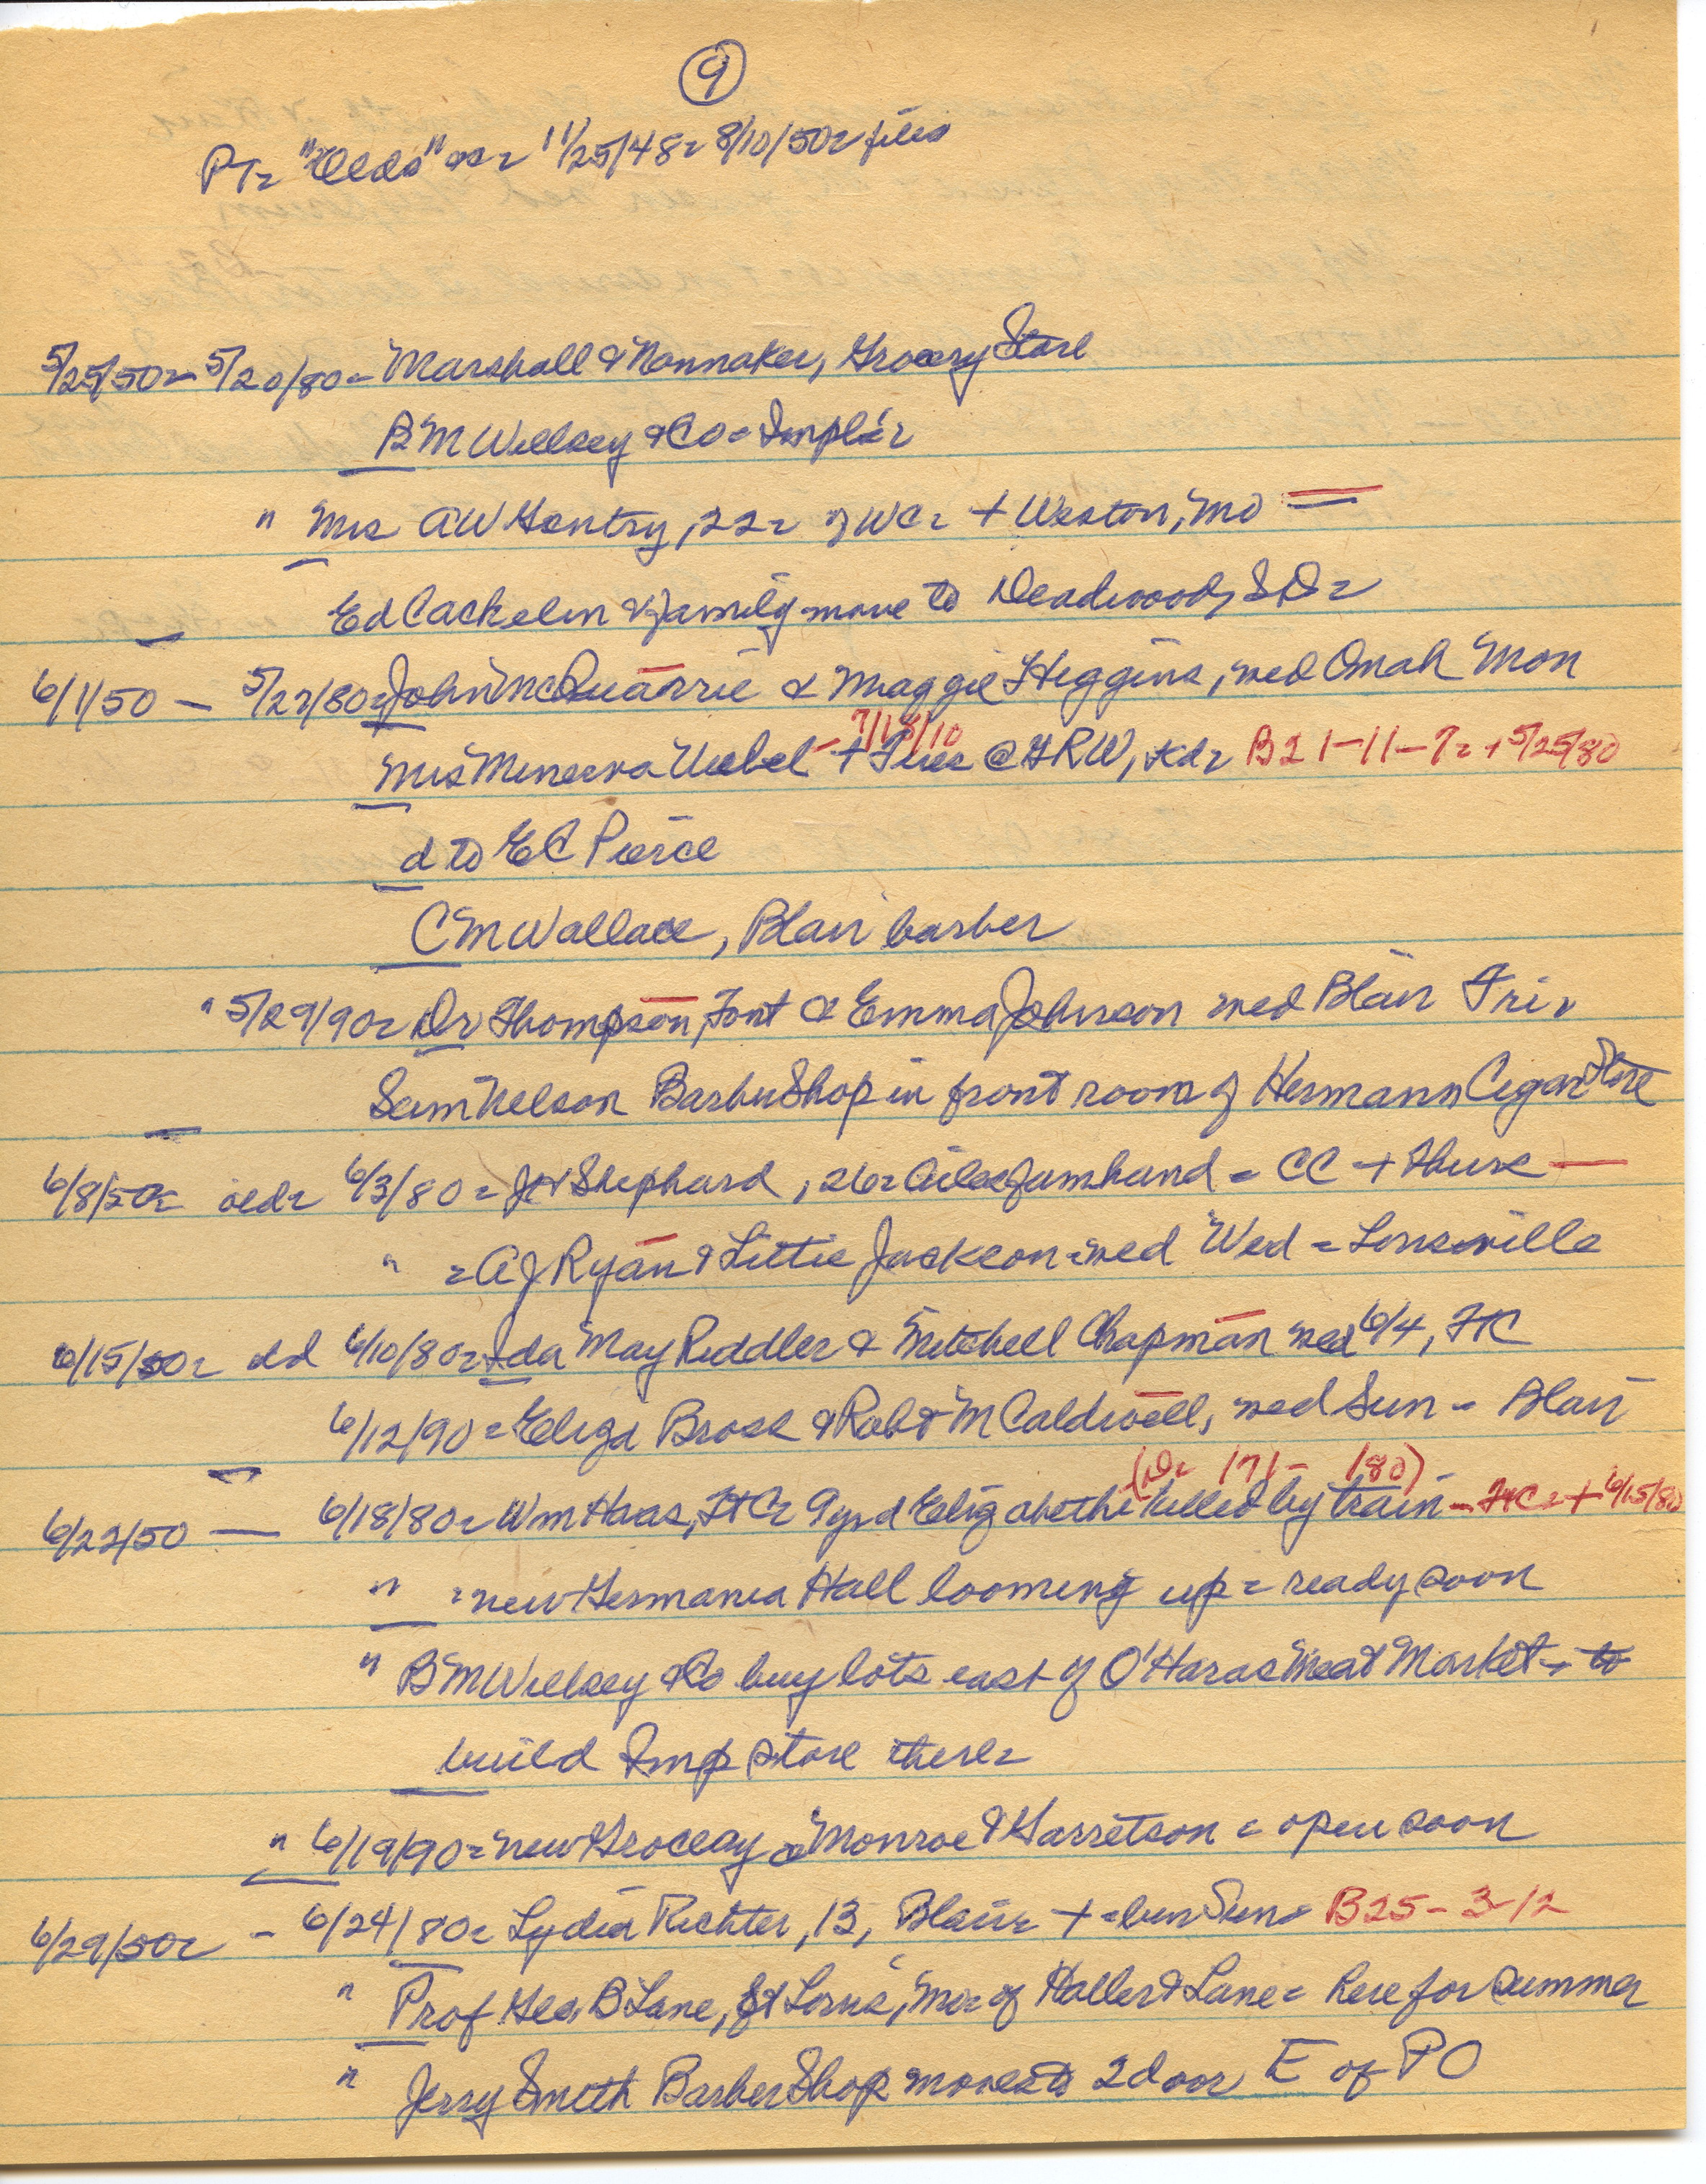 9
PT= "Olds" 11/25/48= 8/10/50= files
5/25/50= 5/20/80= Marshall & Nonnaker, Grocery Store
BM Willsey & Co = Imple'r
" Mrs AW Gentry, 22= of WC= + Weston, Mo =
Ed Cackelin & family move to Deadwood, SD=
6/1/50 — 5/27/80= John McQuarrie & Maggie Higgins, wed Omah Mon
7/18/10
Mrs Minerva Uebel - + Tues @ GRW, Kd= B21-11-7= + 5/25/80
d to EC Pierce
CM Wallace, Blair barber
" 5/29/90= Dr Thompson, Font & Emma Johnson wed Blair Fri.
Sam Nelson Barber Shop in front room of Hermann Cigar Store
6/8/50= old= 6/3/80= Shephard, 26= farmhand = CC + Thurs —
" = AJ Ryan & Littie Jackson = wed Wed = Louisville
6/15/50= old 6/10/80= Ida May Riddler & Mitchell Chapman wed 6/4, FtC
6/12/90= Eliza Bross & Robt M Caldwell, wed Sun = Blair
(D= 171- 180)
6/22/50 — 6/18/80= Wm Haas, FtC= 9yr d Elizabethe killed by train - FtC= + 6/15/80
" = new Germania Hall looming up = ready soon
" BM Willsey & Co buy lots east of O'Haras Meat Market = to
build Imp store there=
" 6/19/90= new Grocery = Monroe & Garretson = open soon
6/29/50= - 6/24/80= Lydia Richter, 13, Blair= + = bur Sun= B25-3-12
" Prof Geo B Lane, St Louis, Mo= of Haller & Lane = here for summer
" Jerry Smith Barber Shop moves to 2 door E of PO